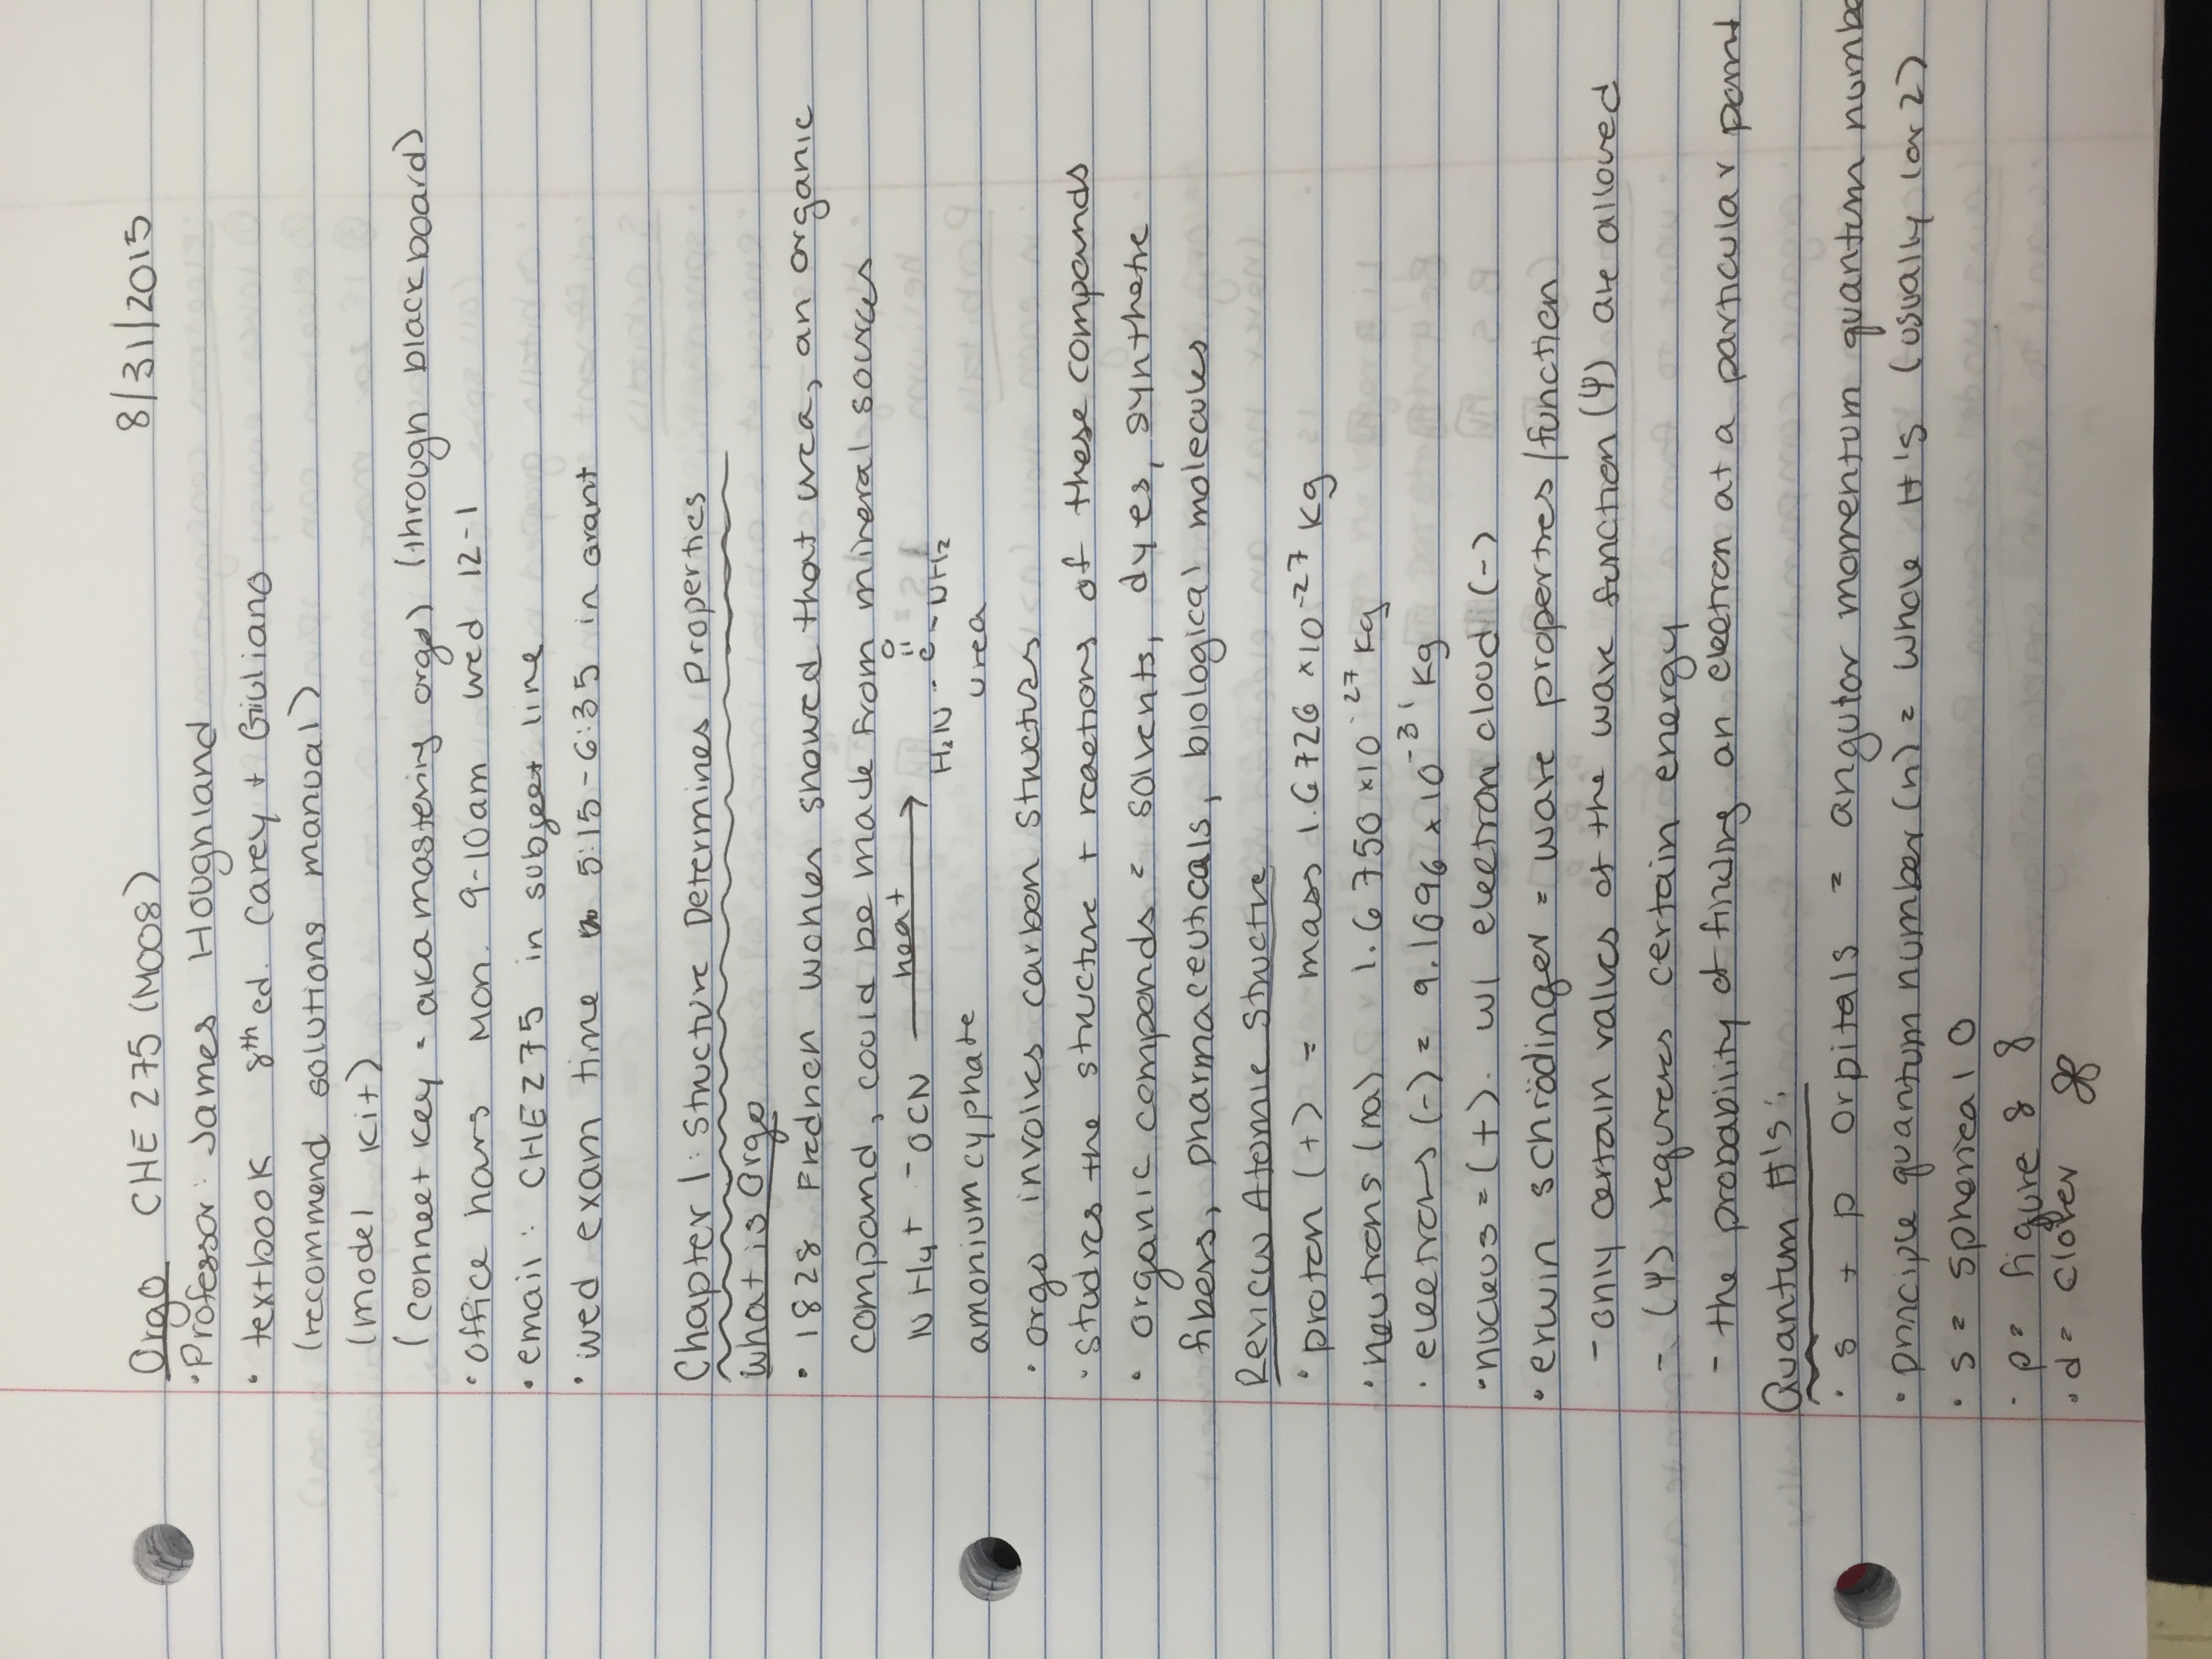 8/31/2015
Orgo CHE 275 (M008)
• Professor: James Hougnland
• textbook 8th ed. Carey + Giuliano
(recommend solutions manual)
(model kit)
(connect key = aka mastering orgo) (through blackboard)
• office hours Mon. 9-10am wed 12-1
• email: CHE275 in subject line
• wed exam time 5:15-6:35 in Grant
Chapter 1: Structure Determines Properties
What is Orgo
• 1828 Fredrich wohler showed that urea, an organic
compound, could be made from mineral sources
NH4+ -OCN heat → H2N-C-NH2
O
amonium cyphate urea
• orgo involves carbon structures
• studies the structure + reactions of these compounds
• organic compounds = solvents, dyes, synthetic
fibers, pharmaceuticals, biological molecules
Review Atomic Structure
• proton (+) = mass 1.6726 x10-27 kg
• neutrons (no) 1.6750 x10-27 kg
• electrons (-) = 9.1096 x 10-31 kg
• nucleus = (+). w/ electron cloud (-)
• erwin schrödinger = wave properties/function
- only certain values of the wave function (Ψ) are allowed
- (Ψ) requires certain energy
- the probability of finding an electron at a particular point
Quantum #'s:
• s + p orpitals = angular momentum quantum numbe
• principle quantum number (n) = whole #'s (usually 1 or 2)
• s = spherical O
• p = figure 8 8
• d = clover